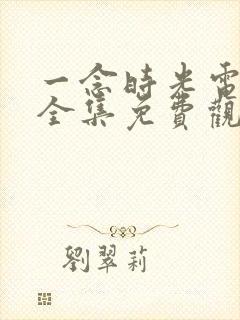 一念時光電
全集免費觀
劉翠莉